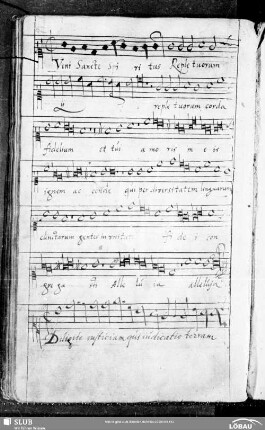 Veni Sancte Spi ri tus Reple tuorum
reple tuorum corda
fidelium et tui a mo ris in e is
ignem ac cende qui per diversitatem linguarum
cunctarum gentes in unitate fi de i con
gre ga sti Alle lu ia alleluja
Diligite justiciam qui judicatis terram
SLUB
LÖBAU